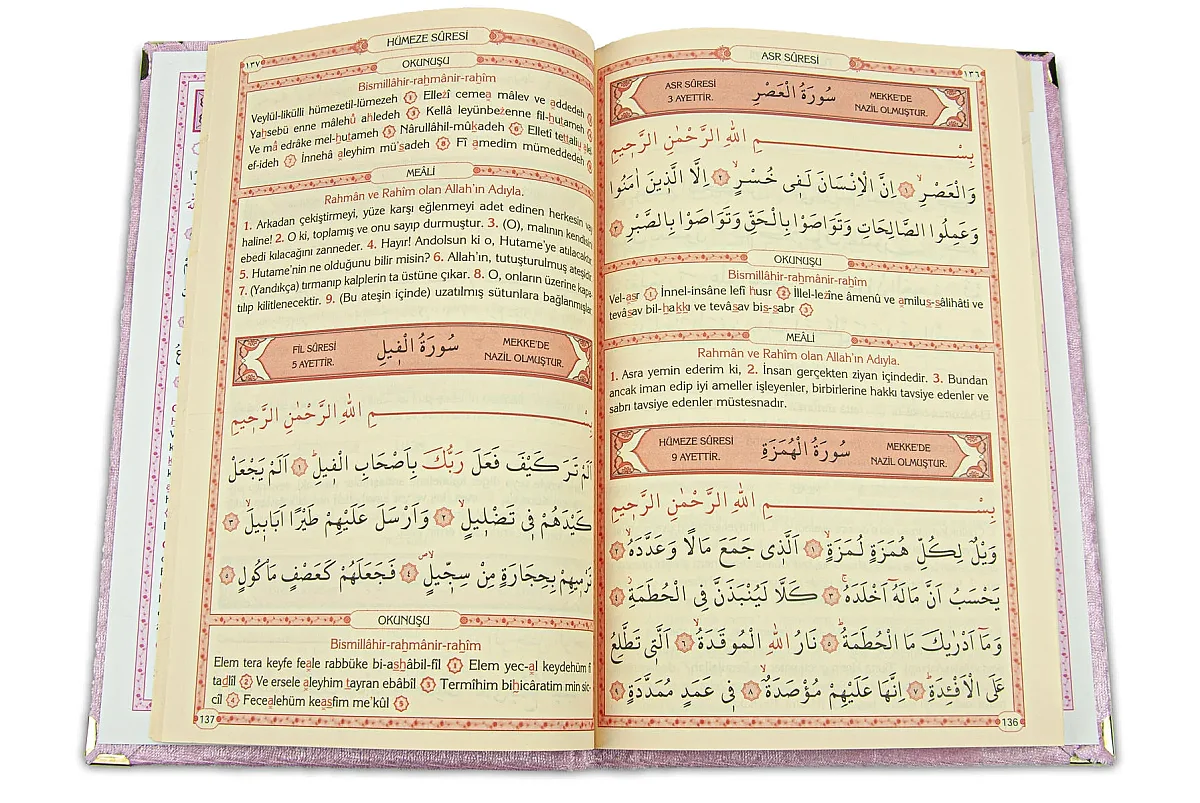 ASR SÛRESİ
١٣٦
ASR SÛRESİ
3 AYETTİR.
سُورَةُ الْعَصْرِ
MEKKE'DE
NAZİL OLMUŞTUR.
بِسْمِ اللهِ الرَّحْمٰنِ الرَّحٖيمِ
وَالْعَصْرِۙ ﴿١﴾ اِنَّ الْاِنْسَانَ لَفٖي خُسْرٍۙ ﴿٢﴾ اِلَّا الَّذٖينَ اٰمَنُوا
وَعَمِلُوا الصَّالِحَاتِ وَتَوَاصَوْا بِالْحَقِّ وَتَوَاصَوْا بِالصَّبْرِ ﴿٣﴾
OKUNUŞU
Bismillâhir-rahmânir-rahîm
Vel-asr (1) İnnel-insâne lefî husr (2) İllel-lezîne âmenû ve amilus-sâlihâti ve
tevâsav bil-hakkı ve tevâsav bis-sabr (3)
MEÂLİ
Rahmân ve Rahîm olan Allah'ın Adıyla.
1. Asra yemin ederim ki, 2. İnsan gerçekten ziyan içindedir. 3. Bundan
ancak iman edip iyi ameller işleyenler, birbirlerine hakkı tavsiye edenler ve
sabrı tavsiye edenler müstesnadır.
HÜMEZE SÛRESİ
9 AYETTİR.
سُورَةُ الْهُمَزَةِ
MEKKE'DE
NAZİL OLMUŞTUR.
بِسْمِ اللهِ الرَّحْمٰنِ الرَّحٖيمِ
وَيْلٌ لِكُلِّ هُمَزَةٍ لُمَزَةٍۙ ﴿١﴾ اَلَّذٖي جَمَعَ مَالًا وَعَدَّدَهُۙ ﴿٢﴾
يَحْسَبُ اَنَّ مَالَهُٓ اَخْلَدَهُۚ ﴿٣﴾ كَلَّا لَيُنْبَذَنَّ فِي الْحُطَمَةِۘ ﴿٤﴾
وَمَٓا اَدْرٰيكَ مَا الْحُطَمَةُۜ ﴿٥﴾ نَارُ اللهِ الْمُوقَدَةُۙ ﴿٦﴾ اَلَّتٖي تَطَّلِعُ
عَلَى الْاَفْئِدَةِۜ ﴿٧﴾ اِنَّهَا عَلَيْهِمْ مُؤْصَدَةٌۙ ﴿٨﴾ فٖي عَمَدٍ مُمَدَّدَةٍ ﴿٩﴾
136
HÜMEZE SÛRESİ
١٣٧
OKUNUŞU
Bismillâhir-rahmânir-rahîm
Veylül-likülli hümezetil-lümezeh (1) Ellezî cemea mâlev ve addedeh
Yahsebü enne mâlehû ahledeh (3) Kellâ leyünbezenne fil-hutameh
Ve mâ edrâke mel-hutameh (5) Nârullâhil-mûkadeh (6) Elletî tettaliu ale
ef-ideh (7) İnnehâ aleyhim mü'sadeh (8) Fî amedim mümeddedeh
MEÂLİ
Rahmân ve Rahîm olan Allah'ın Adıyla.
1. Arkadan çekiştirmeyi, yüze karşı eğlenmeyi adet edinen herkesin vay
haline! 2. O ki, toplamış ve onu sayıp durmuştur. 3. (O), malının kendisini
ebedi kılacağını zanneder. 4. Hayır! Andolsun ki o, Hutame'ye atılacaktır
5. Hutame'nin ne olduğunu bilir misin? 6. Allah'ın, tutuşturulmuş ateşidir
7. (Yandıkça) tırmanıp kalplerin ta üstüne çıkar. 8. O, onların üzerine kapa
tılıp kilitlenecektir. 9. (Bu ateşin içinde) uzatılmış sütunlara bağlanmışlar
FİL SÛRESİ
5 AYETTİR.
سُورَةُ الْفٖيلِ
MEKKE'DE
NAZİL OLMUŞTUR.
بِسْمِ اللهِ الرَّحْمٰنِ الرَّحٖيمِ
اَلَمْ تَرَ كَيْفَ فَعَلَ رَبُّكَ بِاَصْحَابِ الْفٖيلِۜ ﴿١﴾ اَلَمْ يَجْعَلْ
كَيْدَهُمْ فٖي تَضْلٖيلٍۙ ﴿٢﴾ وَاَرْسَلَ عَلَيْهِمْ طَيْرًا اَبَابٖيلَۙ ﴿٣﴾
تَرْمٖيهِمْ بِحِجَارَةٍ مِنْ سِجّٖيلٍۙۖ ﴿٤﴾ فَجَعَلَهُمْ كَعَصْفٍ مَأْكُولٍ ﴿٥﴾
OKUNUŞU
Bismillâhir-rahmânir-rahîm
Elem tera keyfe feale rabbüke bi-ashâbil-fîl (1) Elem yec-al keydehüm f
tadlîl (2) Ve ersele aleyhim tayran ebâbîl (3) Termîhim bihicâratim min sic-
cîl (4) Fecealehüm keasfim me'kûl (5)
137